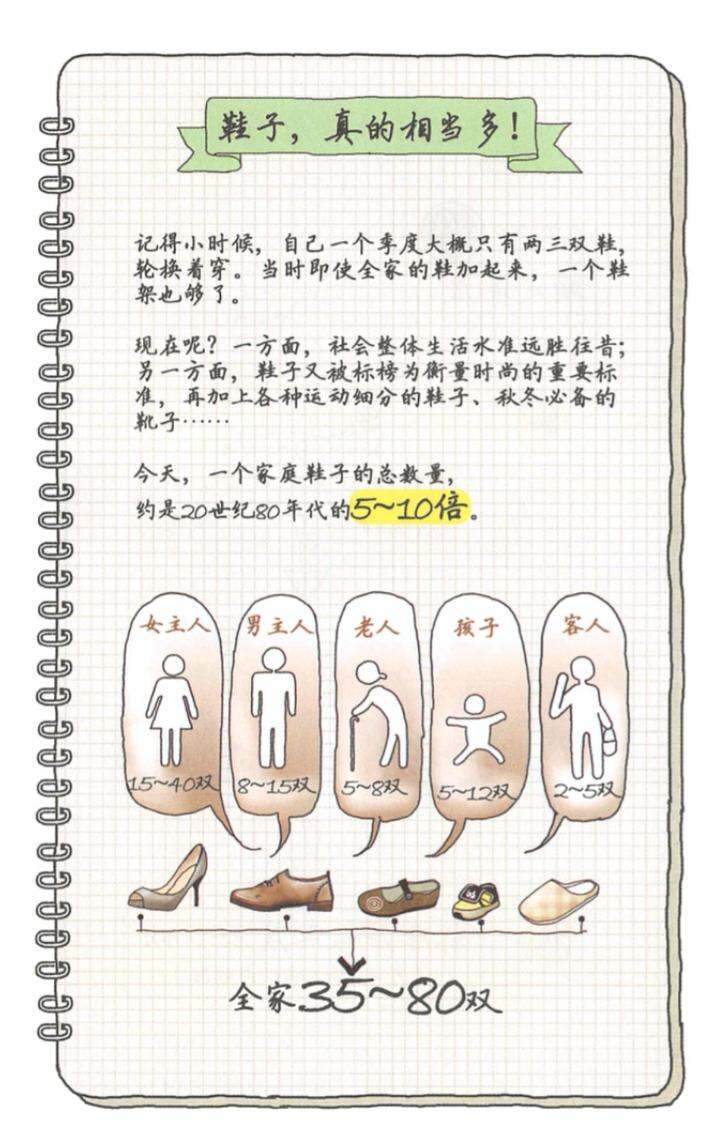 鞋子，真的相当多！
记得小时候，自己一个季度大概只有两三双鞋，
轮换着穿。当时即使全家的鞋加起来，一个鞋
架也够了。
现在呢？一方面，社会整体生活水准远胜往昔；
另一方面，鞋子又被标榜为衡量时尚的重要标
准，再加上各种运动细分的鞋子、秋冬必备的
靴子……
今天，一个家庭鞋子的总数量，
约是20世纪80年代的5~10倍。
女主人 男主人 老人 孩子 客人
15~40双 8~15双 5~8双 5~12双 2~5双
全家35~80双